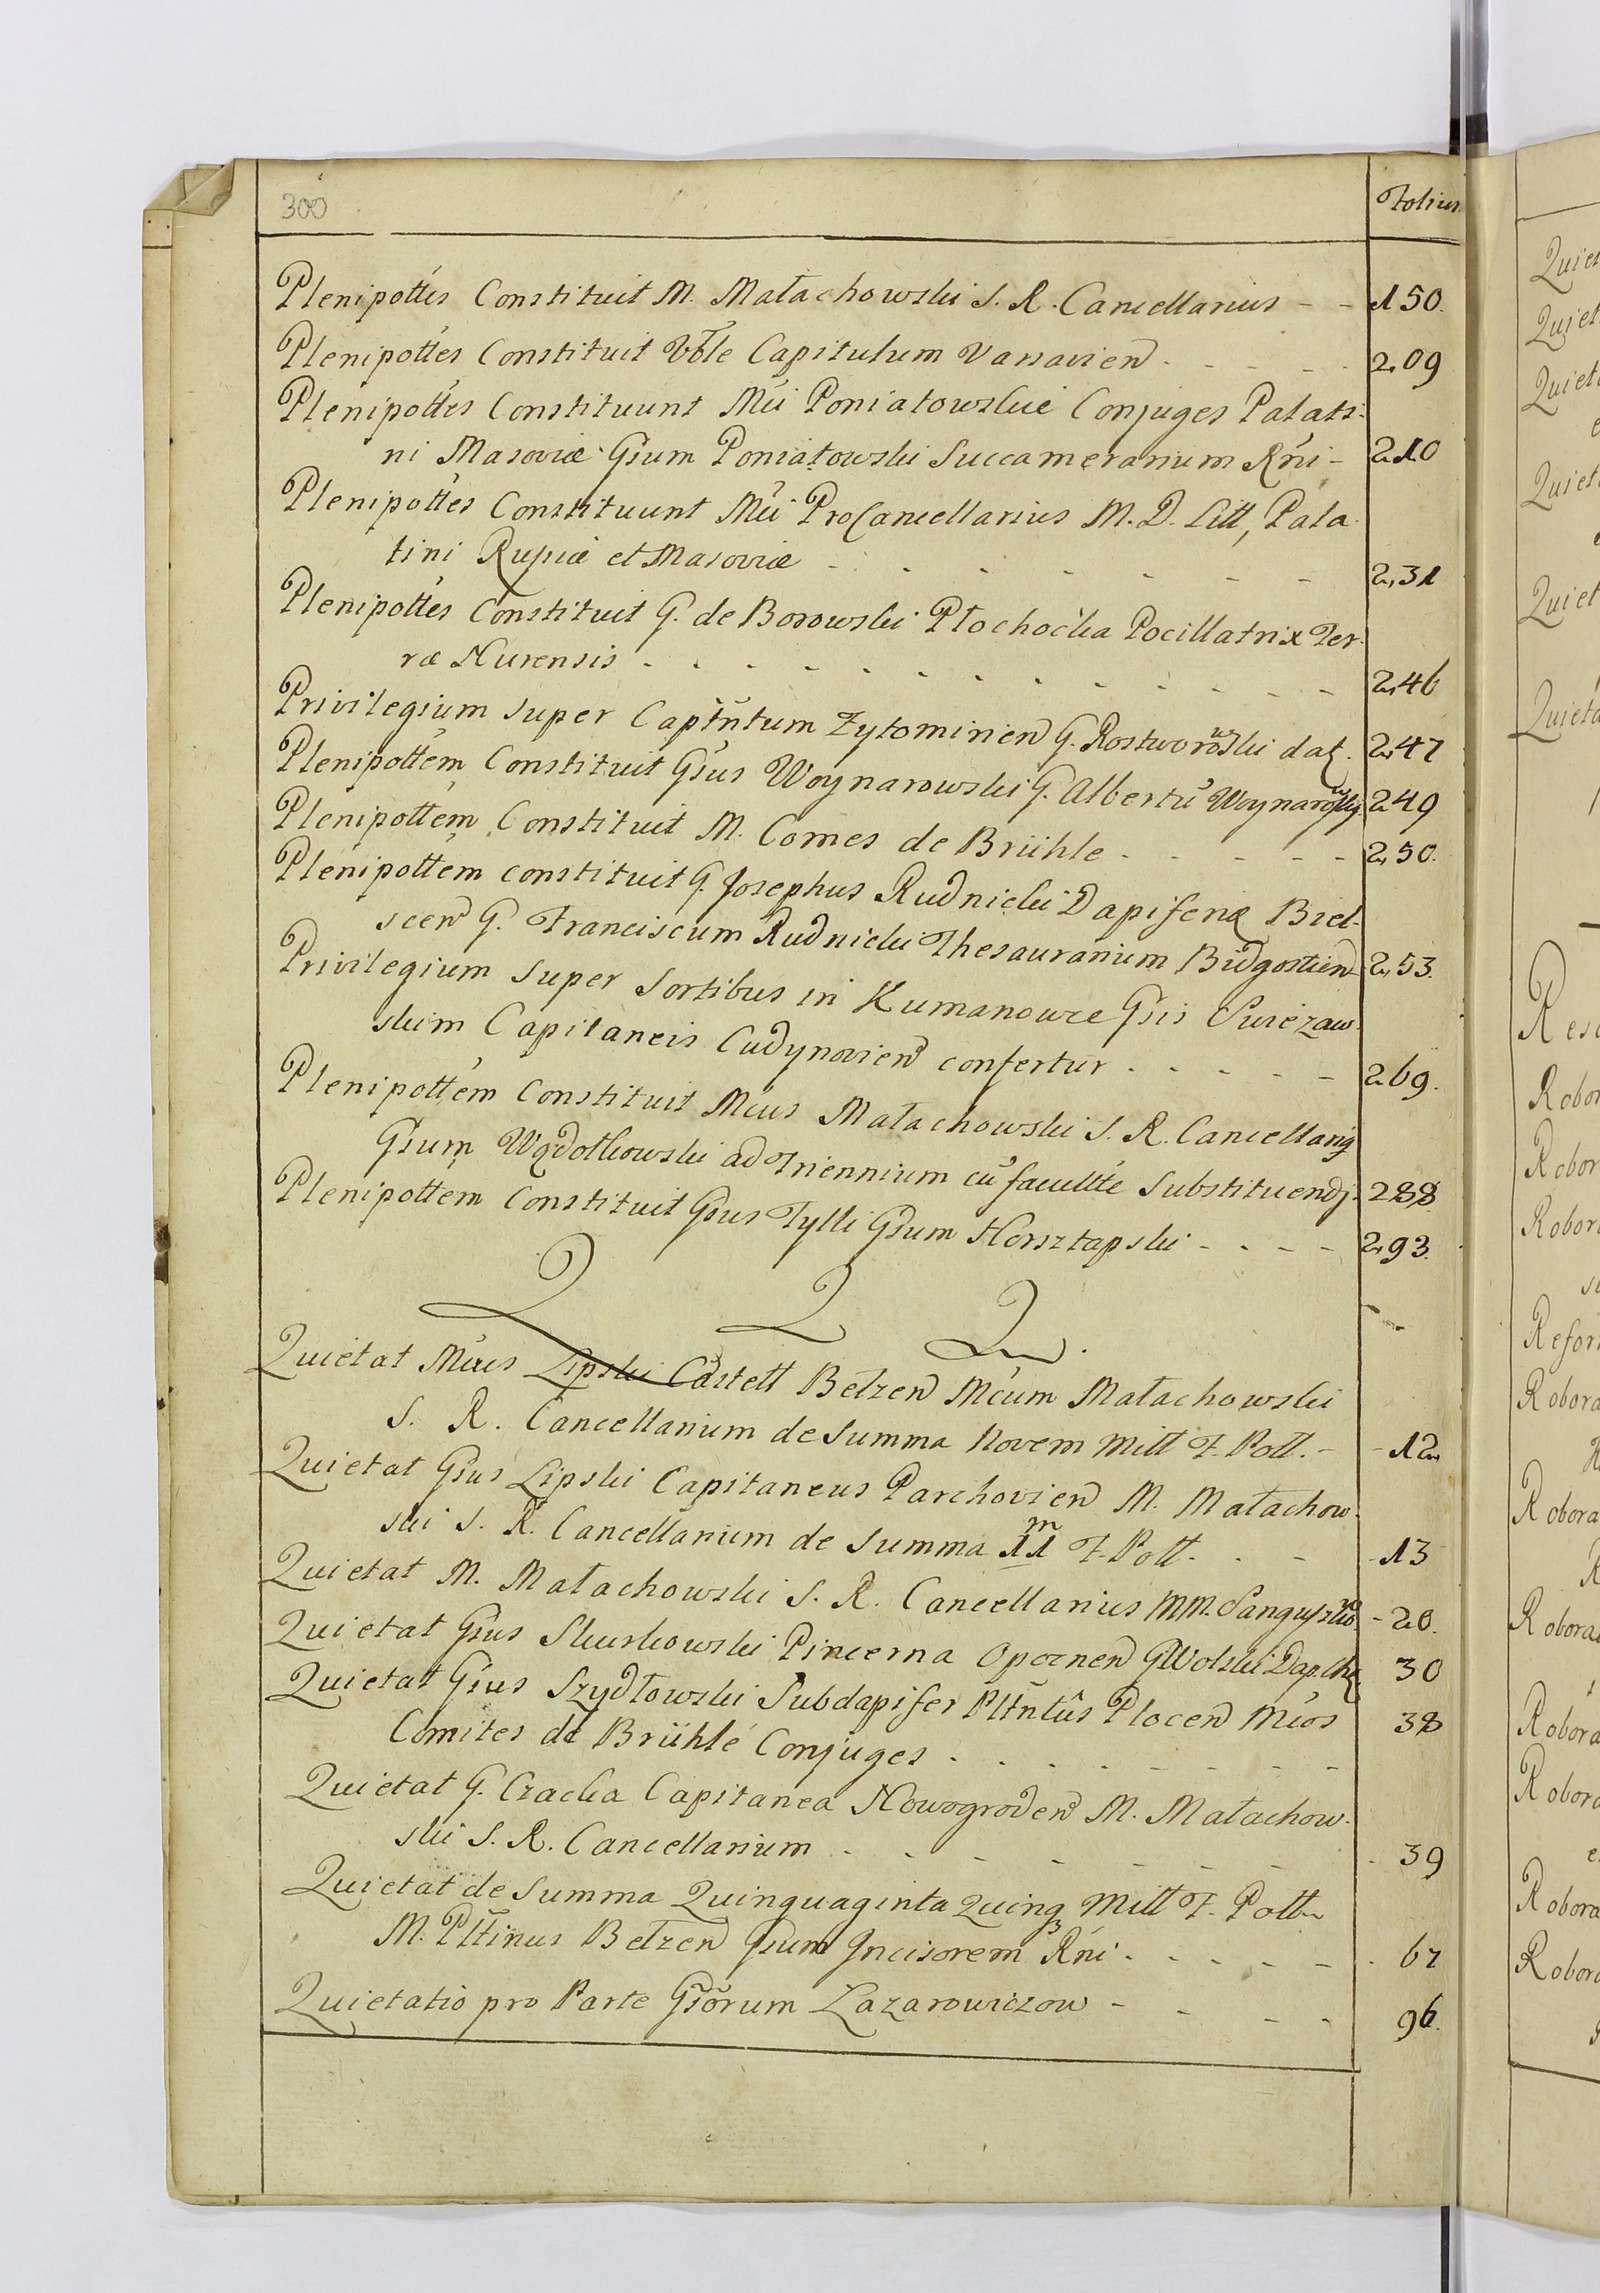 300 Folium
Plenipottes Constituit M. Małachowski S. R. Cancellarius - - 150.
Plenipottes Constituit Vble Capitulum Varsavien - - - - 209
Plenipottes Constituunt Mci Poniatowskie Conjuges Palati-
ni Masoviæ Gsum Poniatowski Succamerarium Rni - 210
Plenipottes Constituunt Mci ProCancellarius M. D. Litt, Pala
tini Russiæ et Masoviæ - - - - - - - 231
Plenipottes Constituit G. de Borowski Płochocka Pocillatrix Ter-
ræ Nurensis - - - - - - - - - - - 246
Privilegium super Captntum Zytomirien G. Rostworowski dat. 247
Plenipottem Constituit Gsus Woynarowski G. Albertu Woynarowsky 249
Plenipottem Constituit M. Comes de Brühle - - - - - 250.
Plenipottem constituit G. Josephus Rudnicki Dapiferq Biel-
scen G. Franciscum Rudnicki Thesaurarium Bidgostien 253.
Privilegium super Sortibus in Kumanowce Gsis
skim Capitaneis confertur - - - - - 269.
Plenipottem Constituit Mcus Małachowski S. R. Cancellariq
Gsum Wądołkowski ad Triennium cu facultte Substituendi. 288
Plenipottem Constituit Gsus Tylli Gsum Horsztapski - - - - 293.
Q Q Q.
Quietat Mcus Lipski Castell Bełzen Mcum Małachowski
S. R. Cancellarium de Summa Novem Mill F. Poll. - - 12
Quietat Gsus Lipski Capitaneus Parchovien M. Małachow-
ski S. R. Cancellarium de Summa 11 m F. Poll. - - - 13
Quietat M. Małachowski S. R. Cancellarius MM. Sanguszko - 20.
Quietat Gsus Skurkowski Pincerna Opocznen G Wolski Dap. 30
Quietat Gsus Szydłowski Subdapifer Pltntus Plocen Mcos 38
Comites de Brühle Conjuges - - - - - - - -
Quietat G. Czacka Capitanea Nowogroden M. Małachow-
ski S. R. Cancellarium - - - - - - - 39
Quietat de Summa Quinquaginta Quinq Mill F. Poll
M. Pltinus Bełzen Gsum Incisorem Rni - - - - - 67
Quietatio pro Parte Gsorum Łazarowiczow - - - - 96.